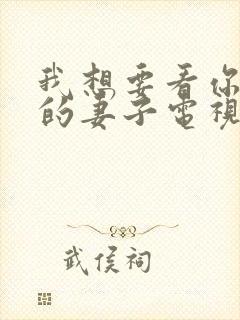 我想要看你
的妻子電視
武侯祠